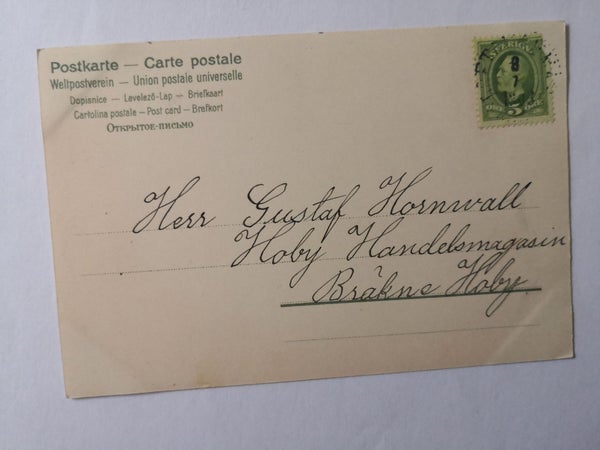 Postkarte — Carte postale
Weltpostverein — Union postale universelle
Dopisnice — Levelező-Lap — Briefkaart
Cartolina postale — Post card — Brefkort
Открытое-письмо
SVERIGE
8
1
ÖRE 5 ÖRE
Herr Gustaf Hornwall
Hoby Handelsmagasin
Bräkne Hoby